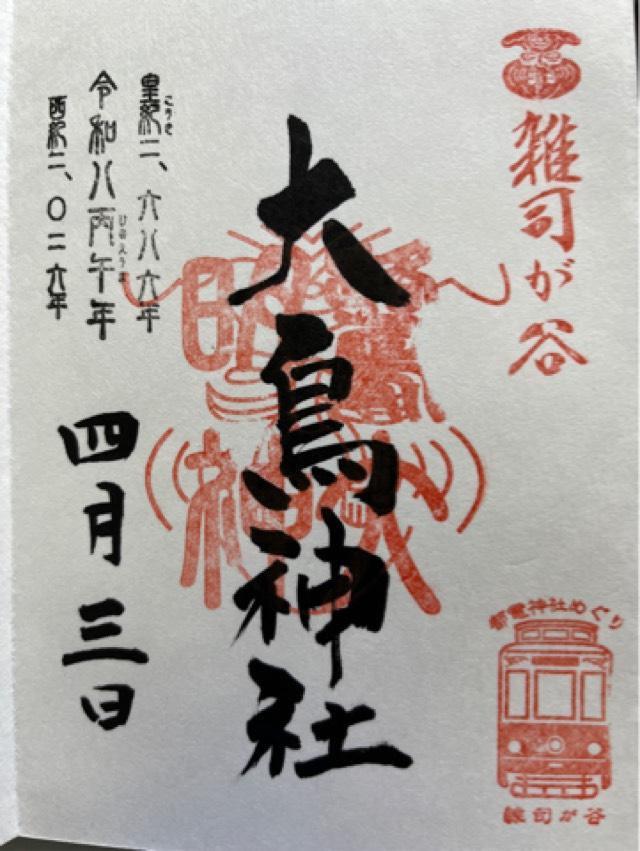 雑司が谷
大鳥神社
皇紀二、六八六年
こうき
令和八丙午年
ひのえうま
西紀二、〇二六年
四月三日
都電神社めぐり
雑司が谷